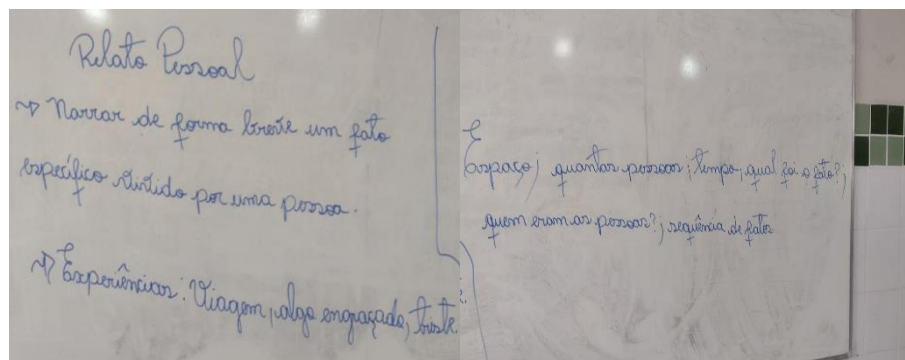 Relato Pessoal
→ Narrar de forma breve um fato
específico vivido por uma pessoa.
→ Experiências: Viagem, algo engraçado, triste.
Espaço; quantas pessoas; tempo; qual foi o fato?;
quem eram as pessoas?; sequência de fatos